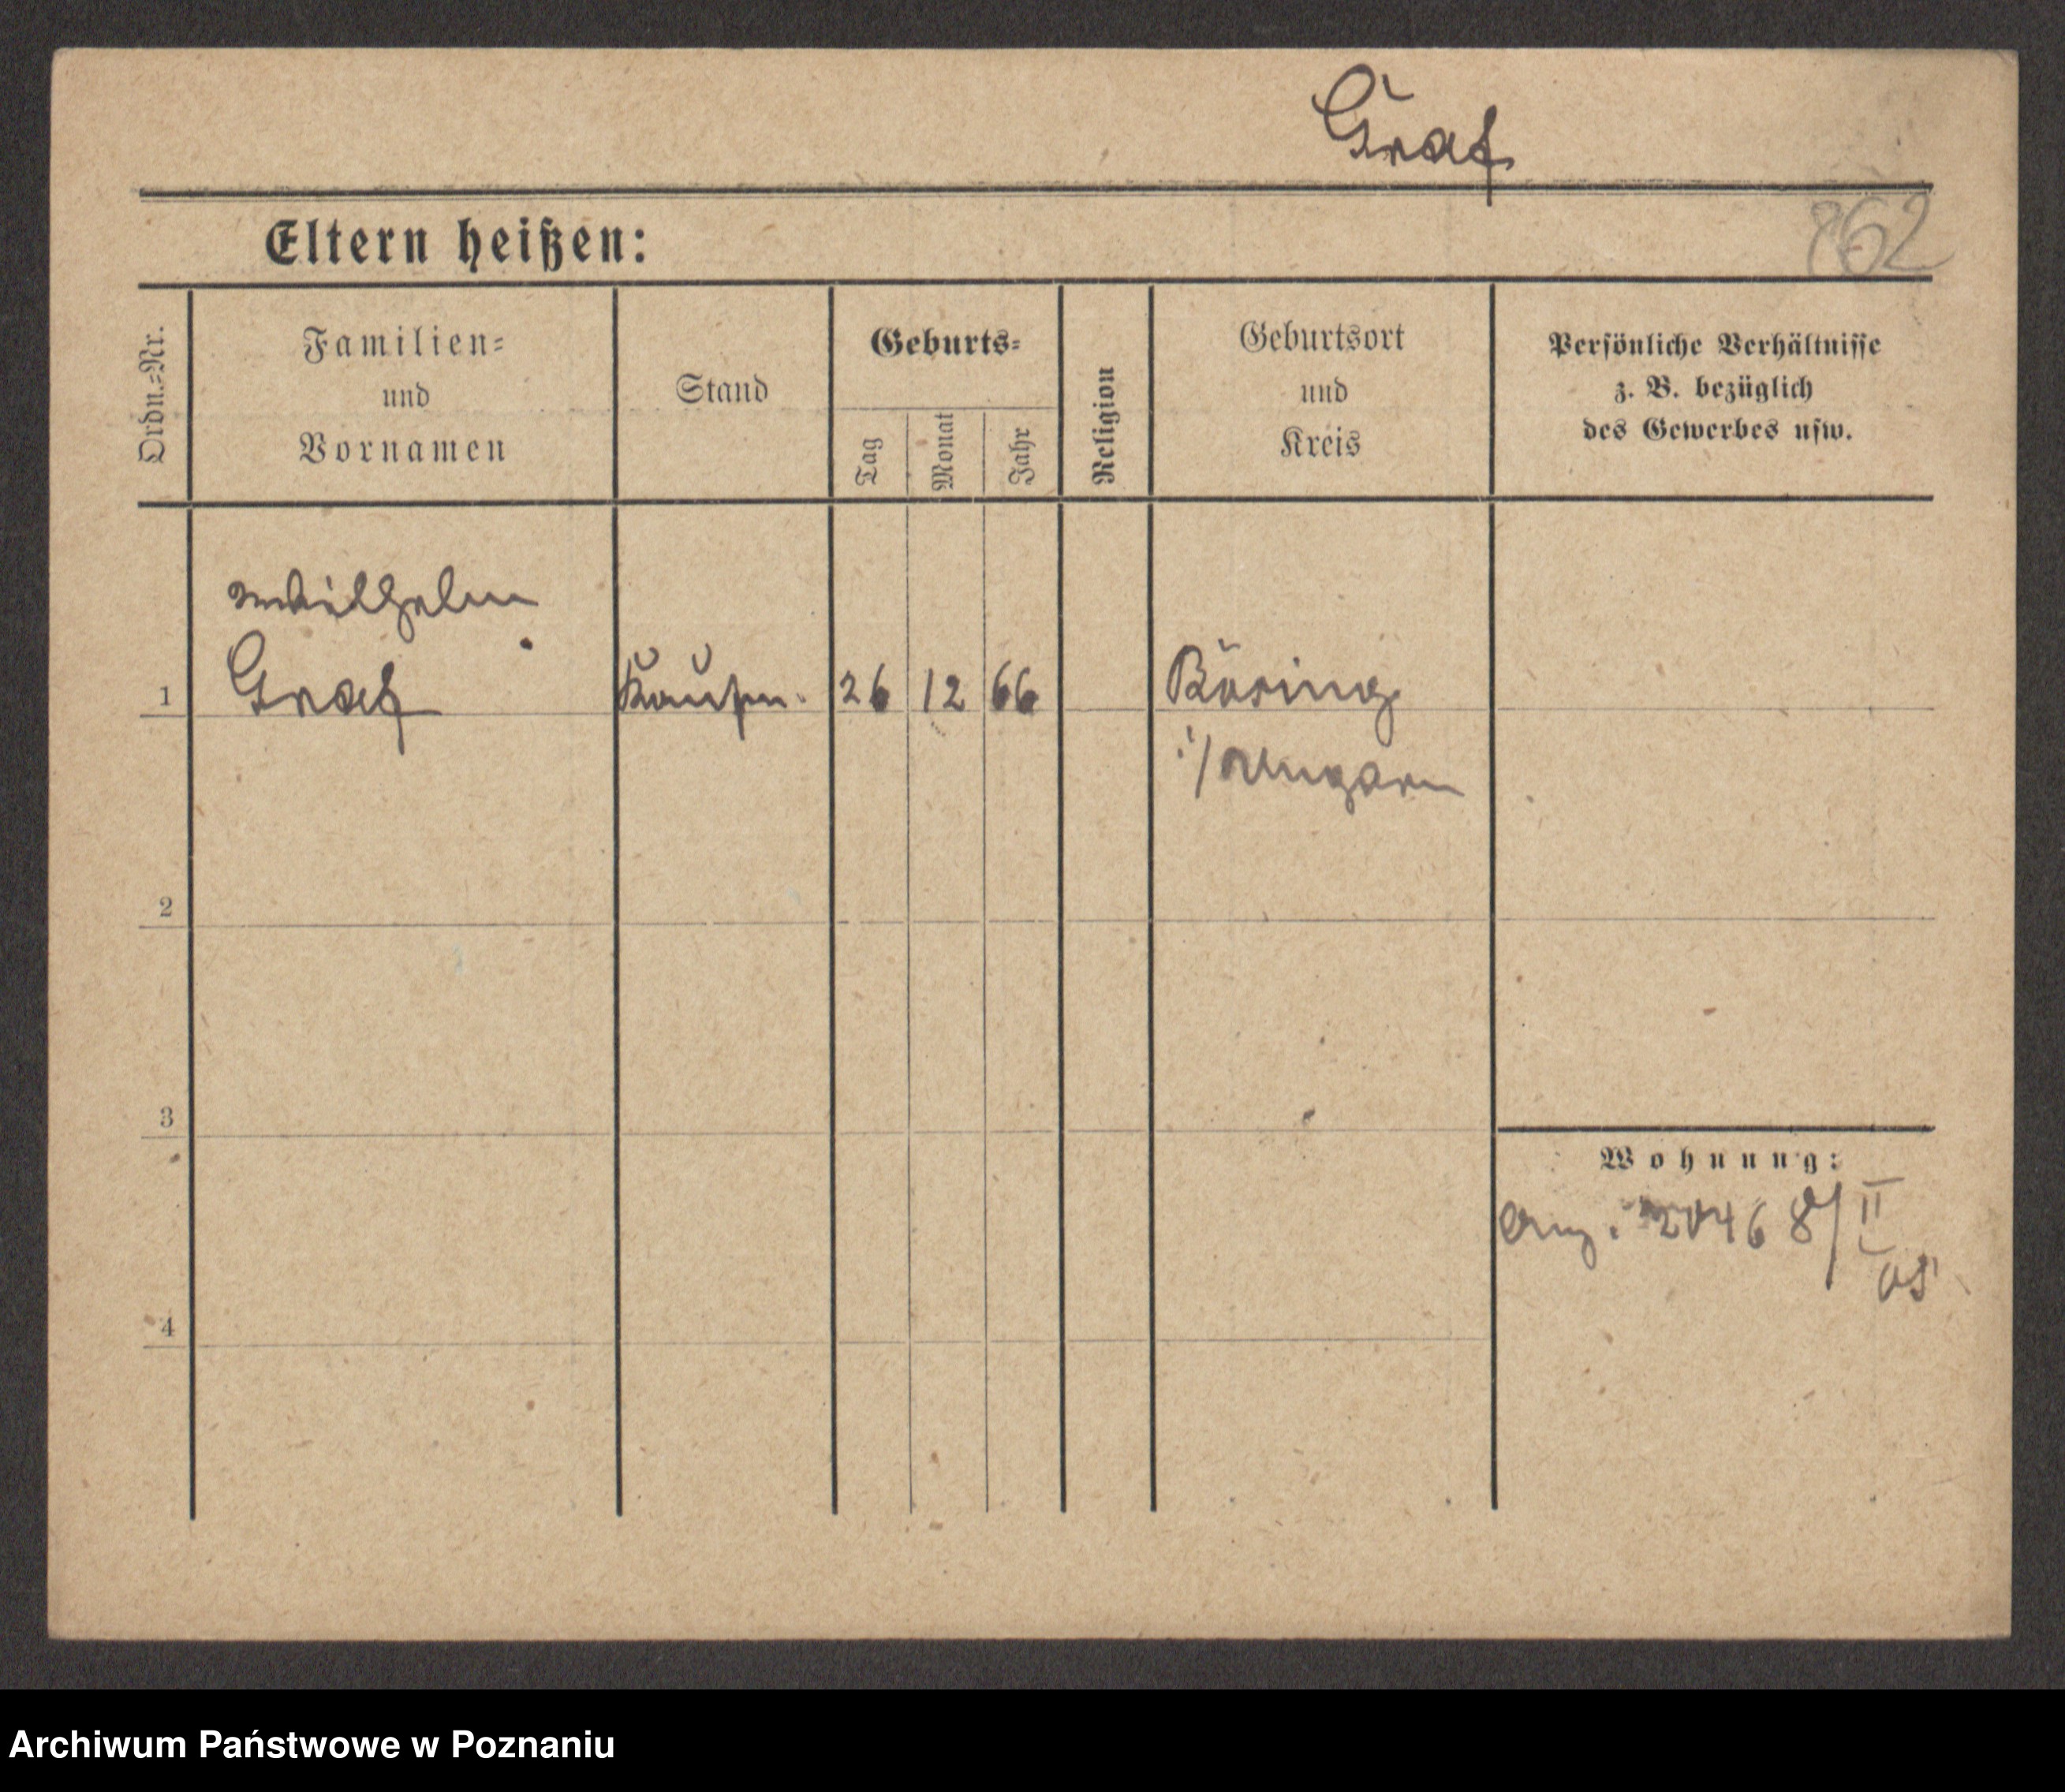 Graf
862
Eltern heißen:
Ordn.=Nr.
Familien=
und
Vornamen
Stand
Geburts=
Tag
Monat
Jahr
Religion
Geburtsort
und
Kreis
Persönliche Verhältnisse
z. B. bezüglich
des Gewerbes usw.
Wilhelm
1 Graf Kaufm. 26 12 66 Böring
i/Ungarn
2
3
Wohnung:
2046 8/II
05
4
Archiwum Państwowe w Poznaniu